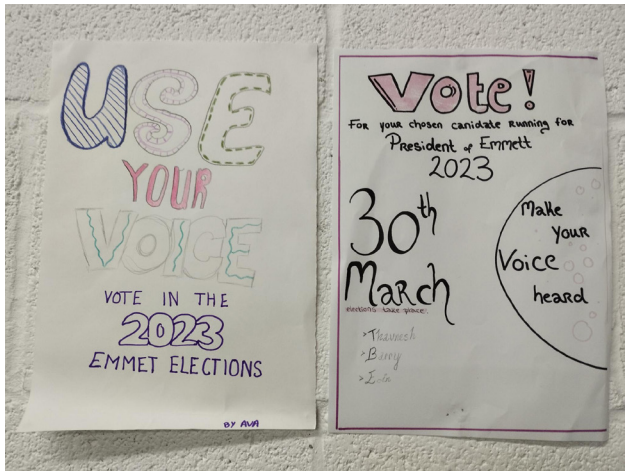 USE
YOUR
VOICE
VOTE IN THE
2023
EMMET ELECTIONS
BY AVA
Vote!
For your chosen canidate running for
President of Emmett
2023
30th
March
elections take place.
Make
your
Voice
heard
>Barry